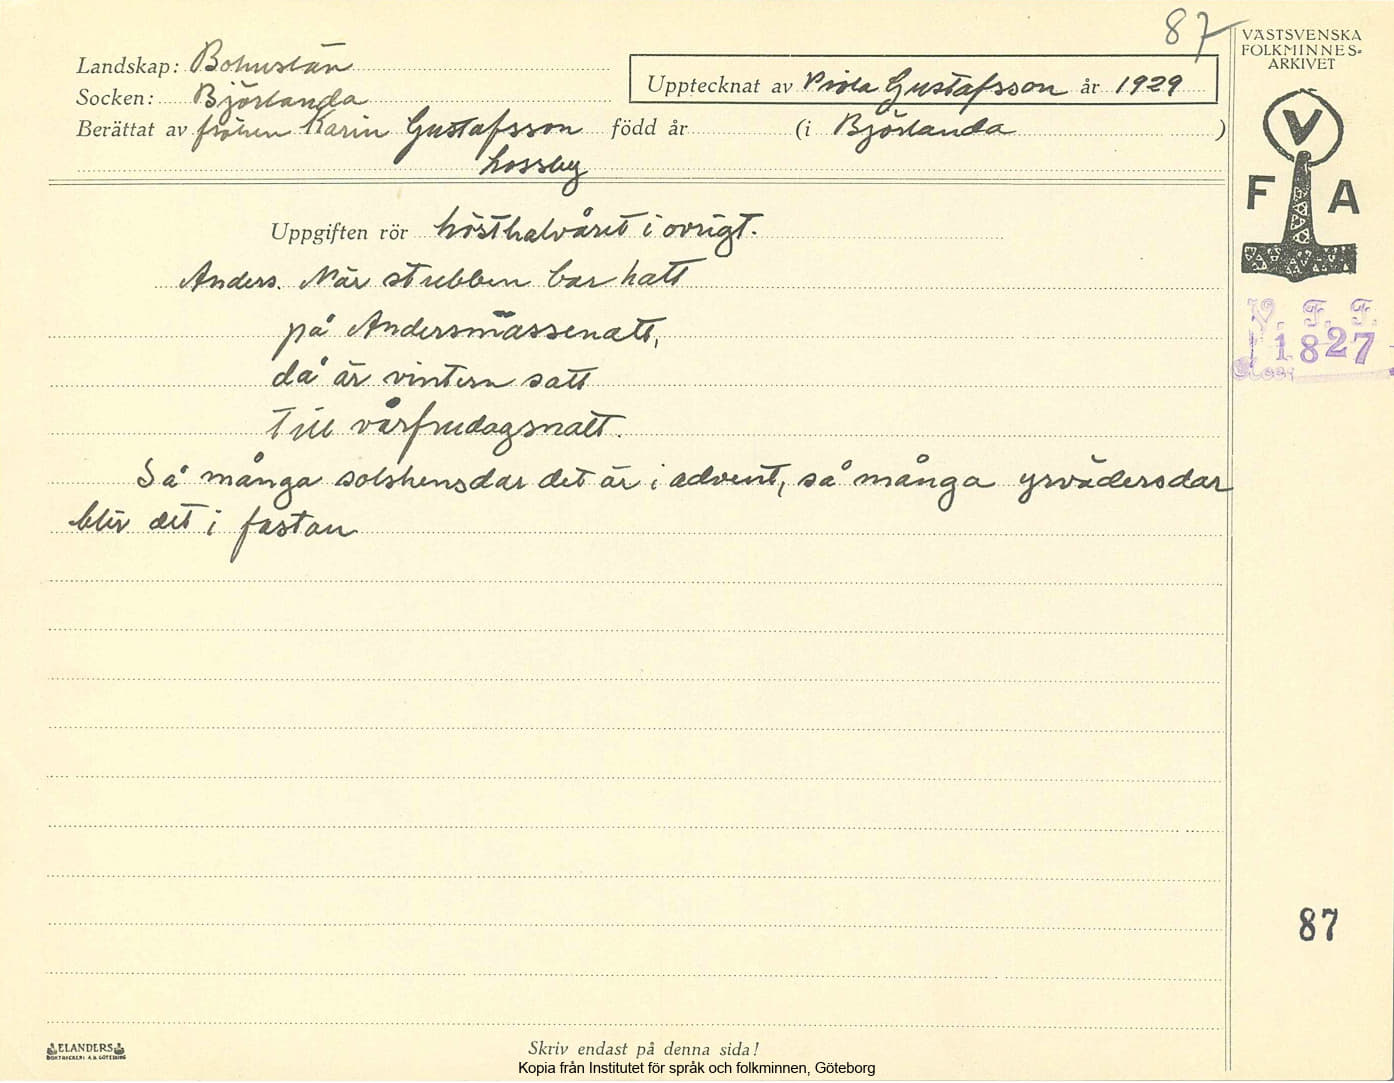 87
VÄSTSVENSKA
FOLKMINNES-
ARKIVET
Landskap: Bohuslän
Socken: Björlanda
Upptecknat av Viola Gustafsson år 1929
Berättat av fröken Karin Gustafsson född år (i Björlanda )
Lossby
V
F A
Uppgiften rör hösthalvåret i övrigt.
Anders. När stubben bar hatt
på Andersmässenatt,
då är vintern satt
till vårfrudagsnatt.
Så många solskensdar det är i advent, så många yrvädersdar
bliv det i fastan
V. F. F.
1827
87
ELANDERS
BOKTRYCKERI A.B. GÖTEBORG
Skriv endast på denna sida!
Kopia från Institutet för språk och folkminnen, Göteborg